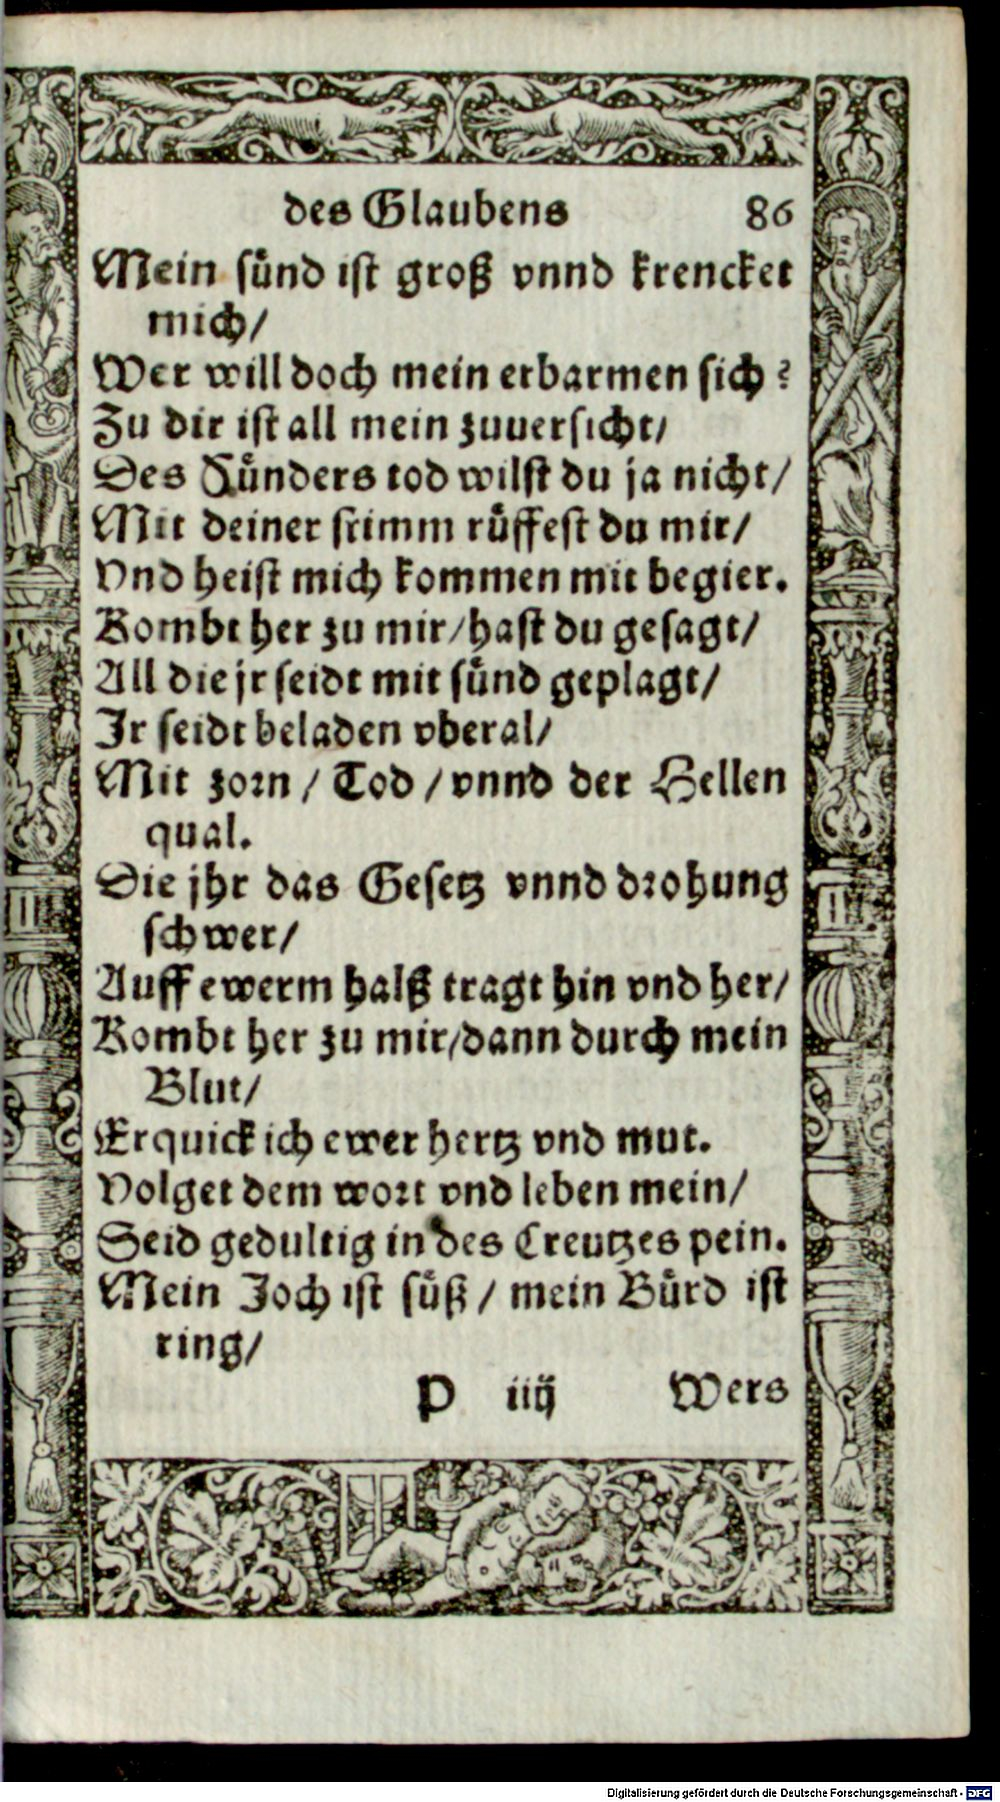 des Glaubens 86
Mein sünd ist groß vnnd krencket
mich/
Wer will doch mein erbarmen sich?
Zu dir ist all mein zuuersicht/
Des Sünders tod wilst du ja nicht/
Mit deiner stimm rüffest du mir/
Vnd heist mich kommen mit begier.
Kombt her zu mir/hast du gesagt/
All die jr seidt mit sünd geplagt/
Ir seidt beladen vberal/
Mit zorn / Tod / vnnd der Hellen
qual.
Die jhr das Gesetz vnnd drohung
schwer/
Auff ewerm halß tragt hin vnd her/
Kombt her zu mir/dann durch mein
Blut/
Erquick ich ewer hertz vnd mut.
Volget dem wort vnd leben mein/
Seid gedultig in des Creutzes pein.
Mein Joch ist süß / mein Bürd ist
ring/
P iiij Wers
Digitalisierung gefördert durch die Deutsche Forschungsgemeinschaft - DFG